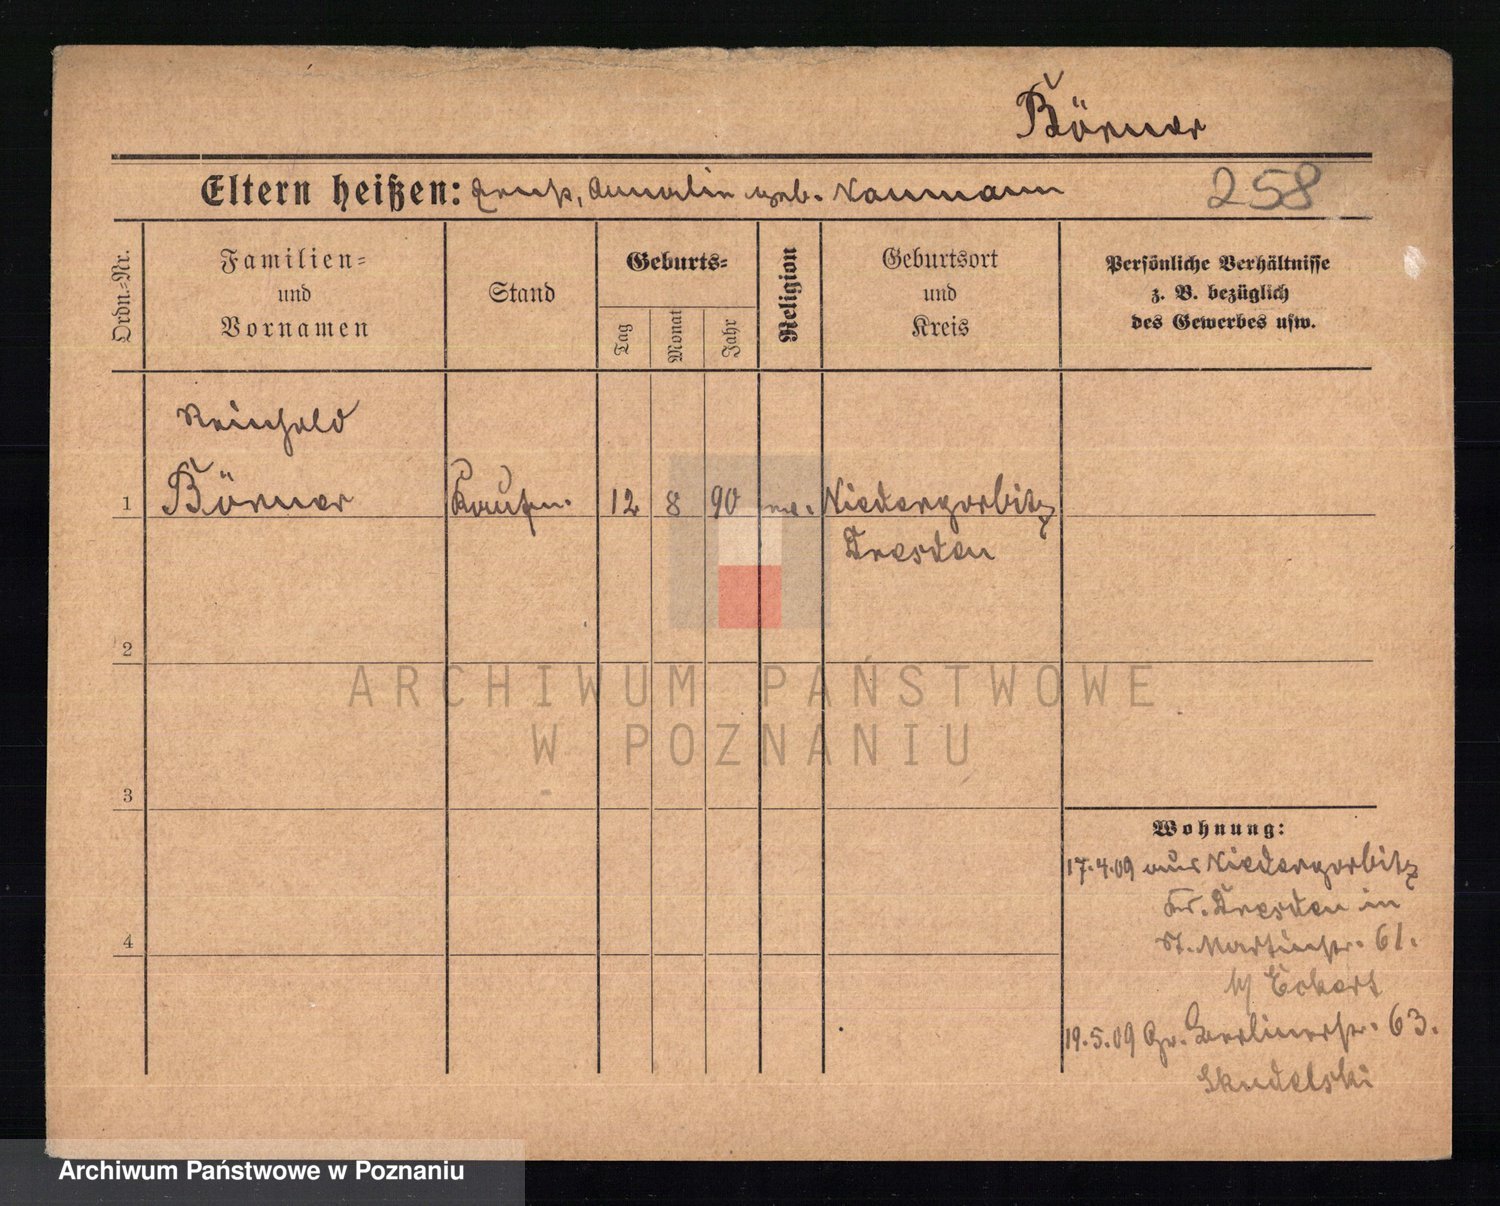 Börner
Eltern heißen: Ernst, Amalie geb. Naumann
258
Ordn.-Nr.
Familien-
und
Vornamen
Stand
Geburts-
Tag
Monat
Jahr
Religion
Geburtsort
und
Kreis
Persönliche Verhältnisse
z. B. bezüglich
des Gewerbes usw.
Reinhold
1 Börner Kaufm. 12 8 90 ev. Niedergorbitz
Dresden
2
ARCHIWUM PAŃSTWOWE
W POZNANIU
3
Wohnung:
17.4.09 aus Niedergorbitz
Kr. Dresden in
St. Martinstr. 61.
b/ Eckert
4
19.5.09 Gr. Berlinerstr. 63.
Skudelski
Archiwum Państwowe w Poznaniu